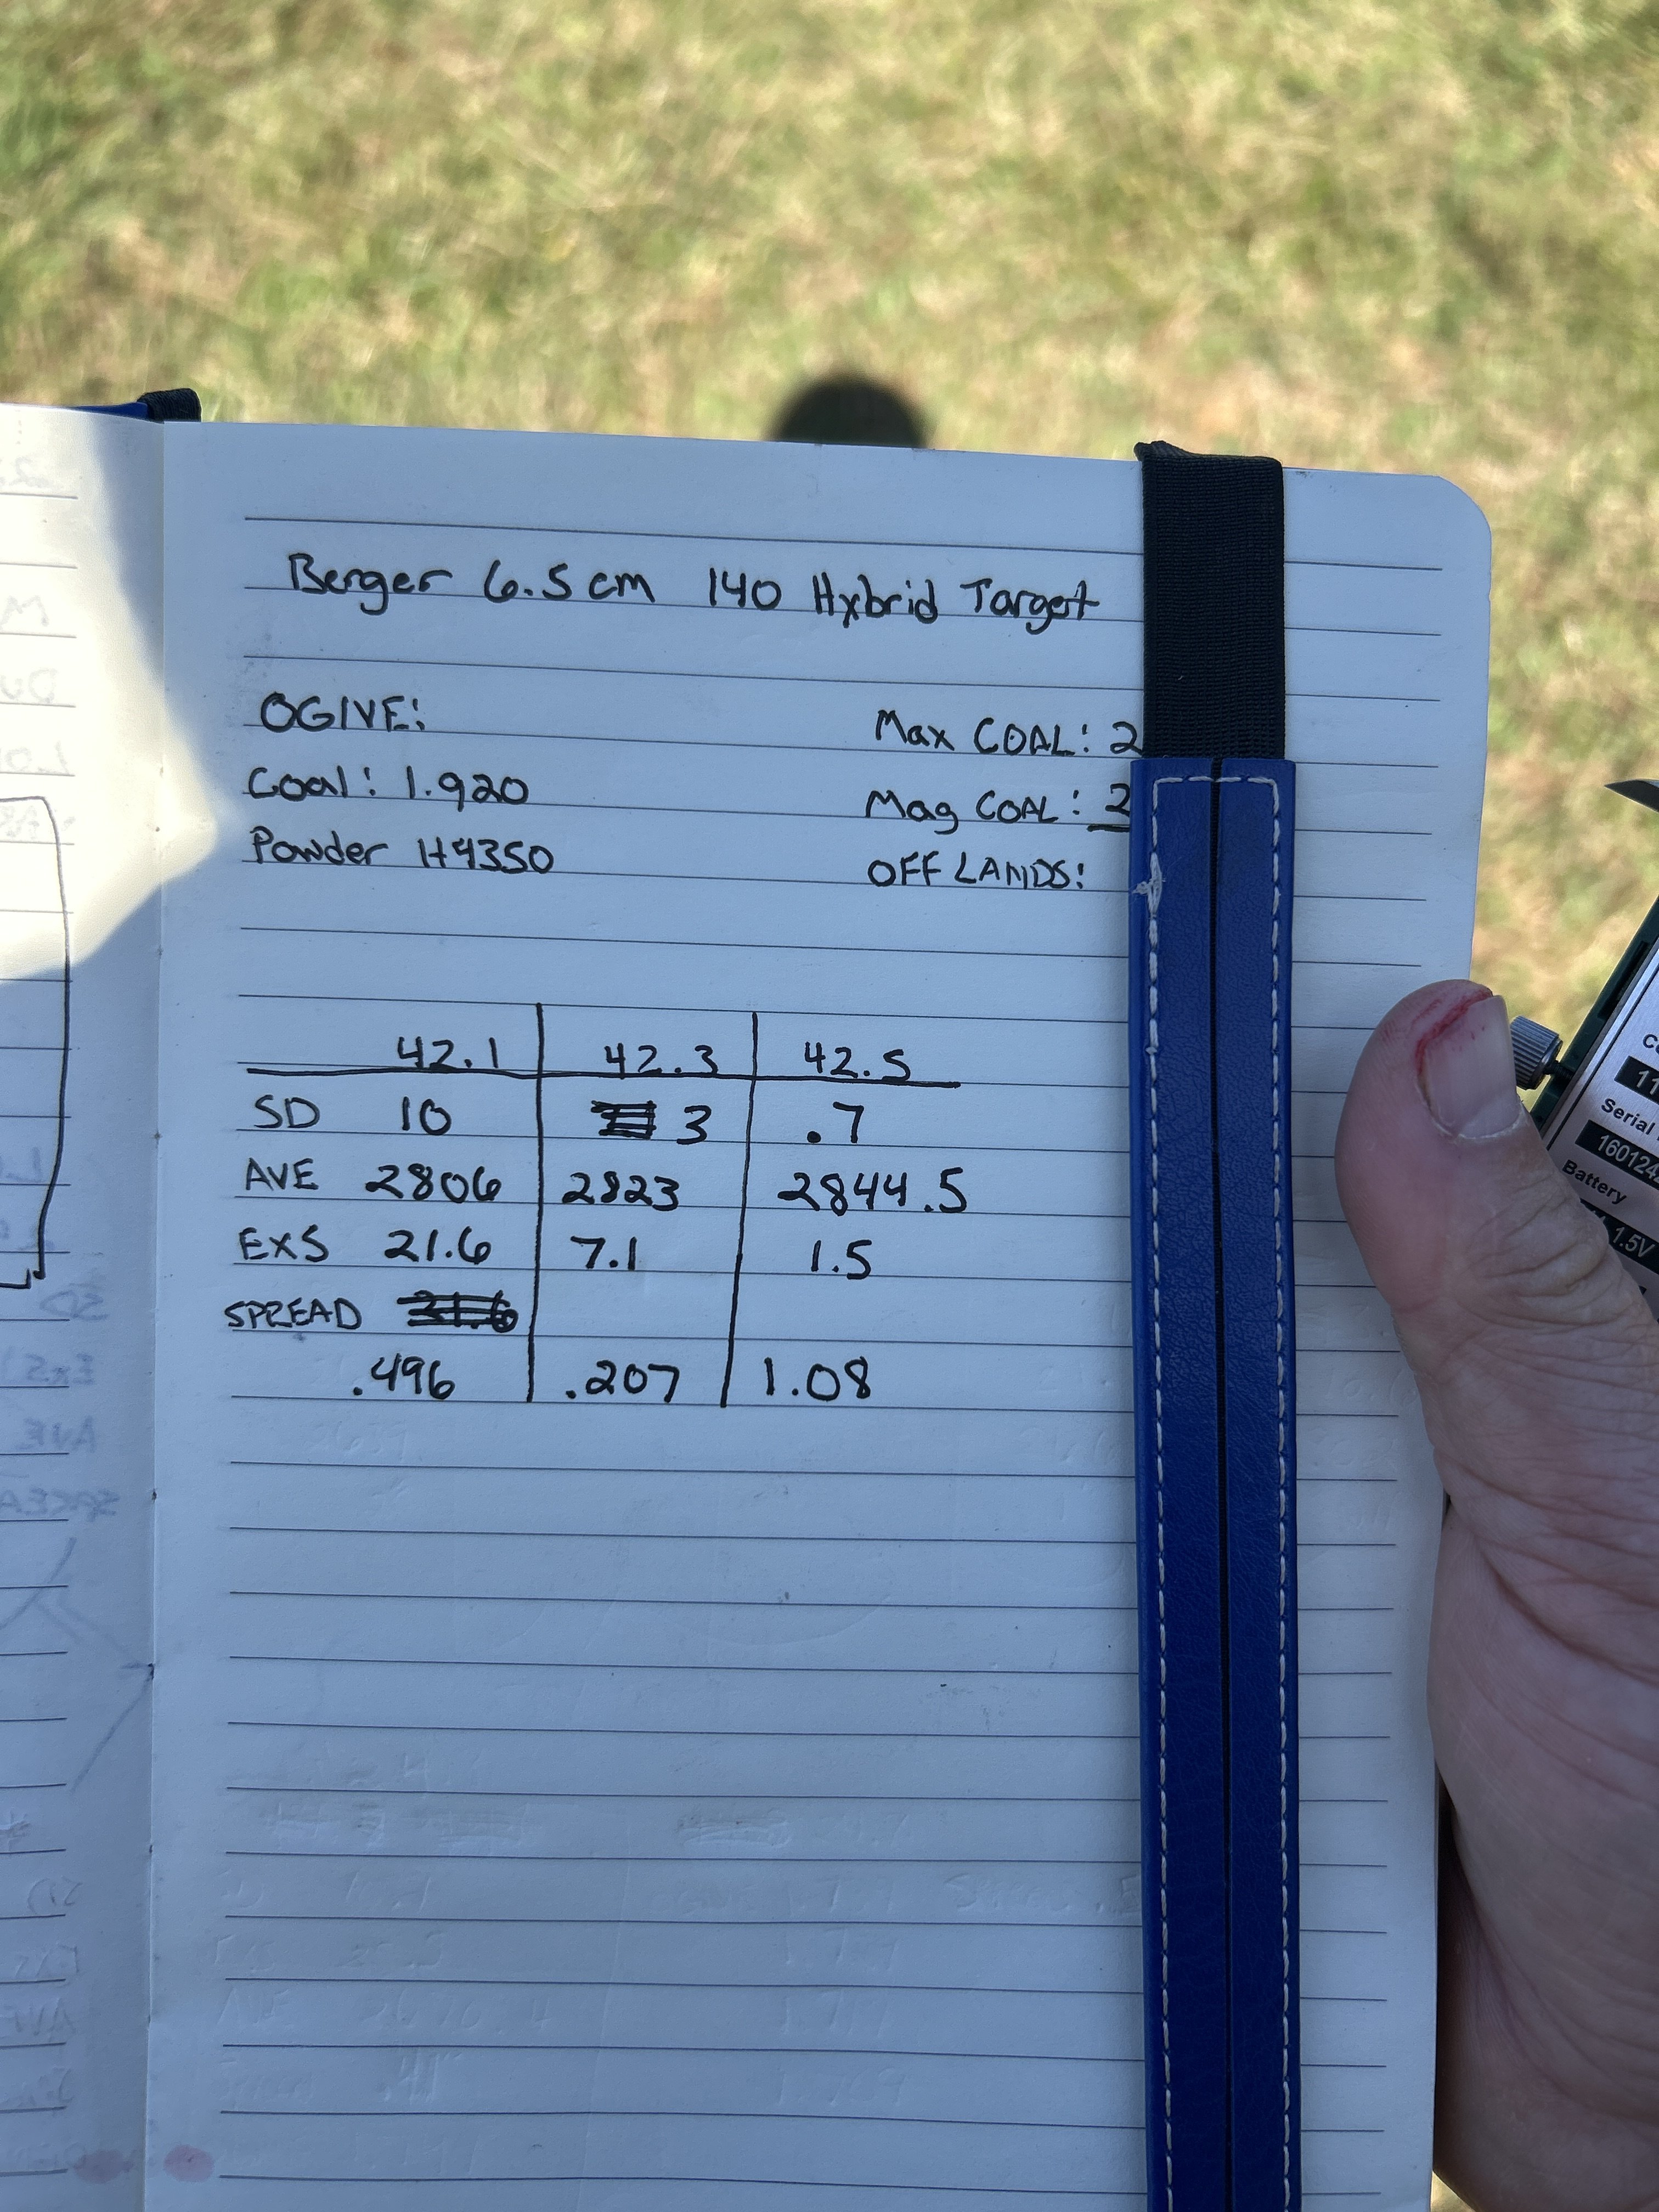 Berger 6.5 cm 140 Hybrid Target
OGIVE:
Max COAL: 2
Coal: 1.920
Mag COAL: 2
Powder H4350
OFF LANDS:
42.1 42.3 42.5
SD 10 3 .7
AVE 2806 2823 2844.5
EXS 21.6 7.1 1.5
SPREAD
.496 .207 1.08
11
Serial
160124
Battery
1.5V